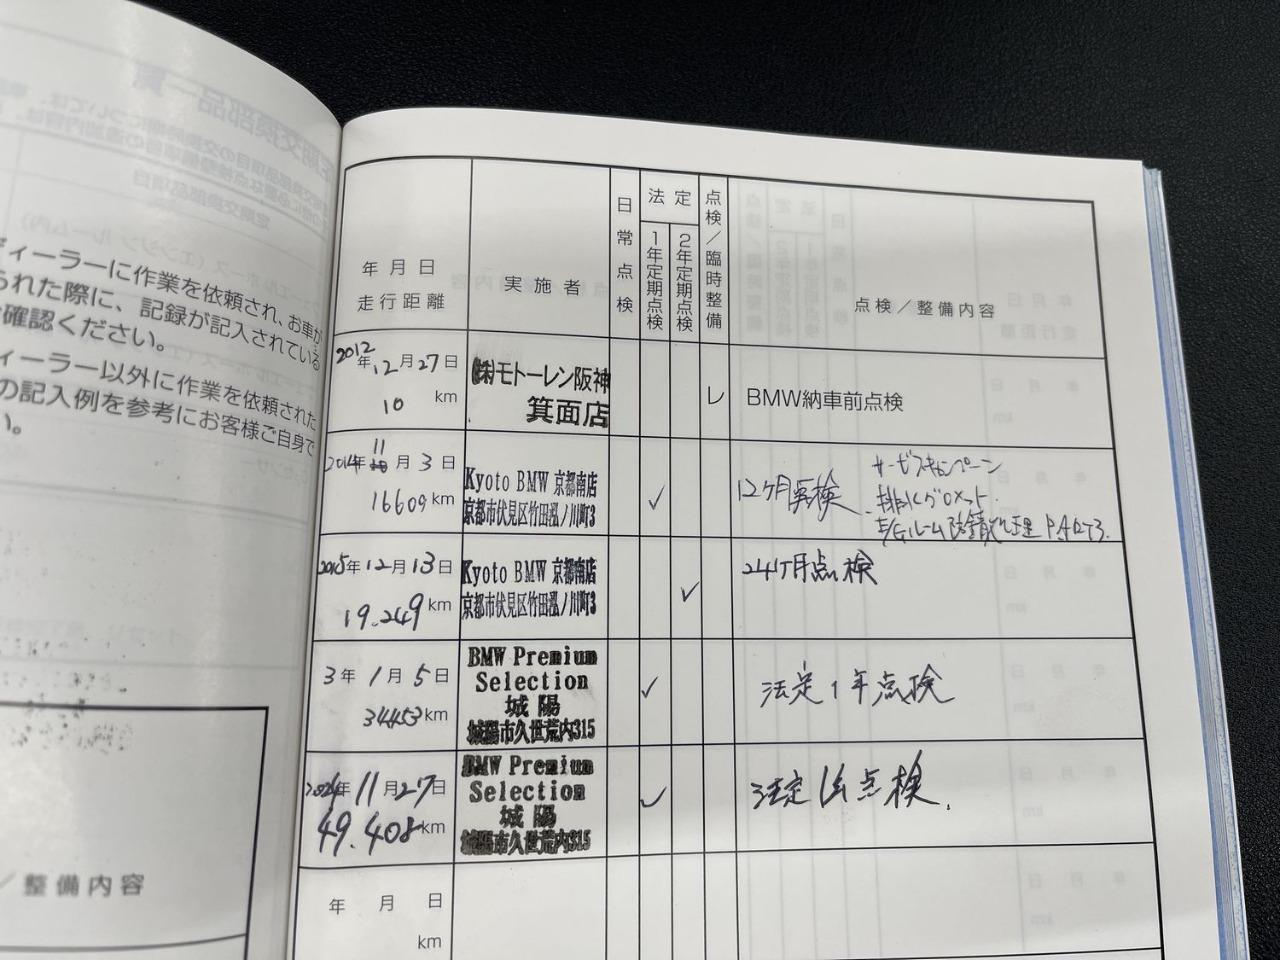 ディーラーに作業を依頼され、お車が
られた際に、記録が記入されている
確認ください。
ィーラー以外に作業を依頼された
の記入例を参考にお客様ご自身で
い。
／整備内容
年月日
走行距離
実施者
日常点検
法定
1年定期点検
2年定期点検
点検／臨時整備
点検／整備内容
2012年12月27日
10 km
㈱モトーレン阪神
箕面店
レ
BMW納車前点検
2014年11月3日
16609km
Kyoto BMW 京都南店
京都市伏見区竹田泓ノ川町3
✓
12ヶ月点検
サービスキャンペーン
排水グロメット
E/Gルーム防錆処理 PART3.
2015年12月13日
19.249km
Kyoto BMW 京都南店
京都市伏見区竹田泓ノ川町3
✓
24ヶ月点検
3年1月5日
34453km
BMW Premium
Selection
城陽
城陽市久世荒内315
✓
法定1年点検
2024年11月27日
49.408km
BMW Premium
Selection
城陽
城陽市久世荒内315
✓
法定1年点検.
年月日
km